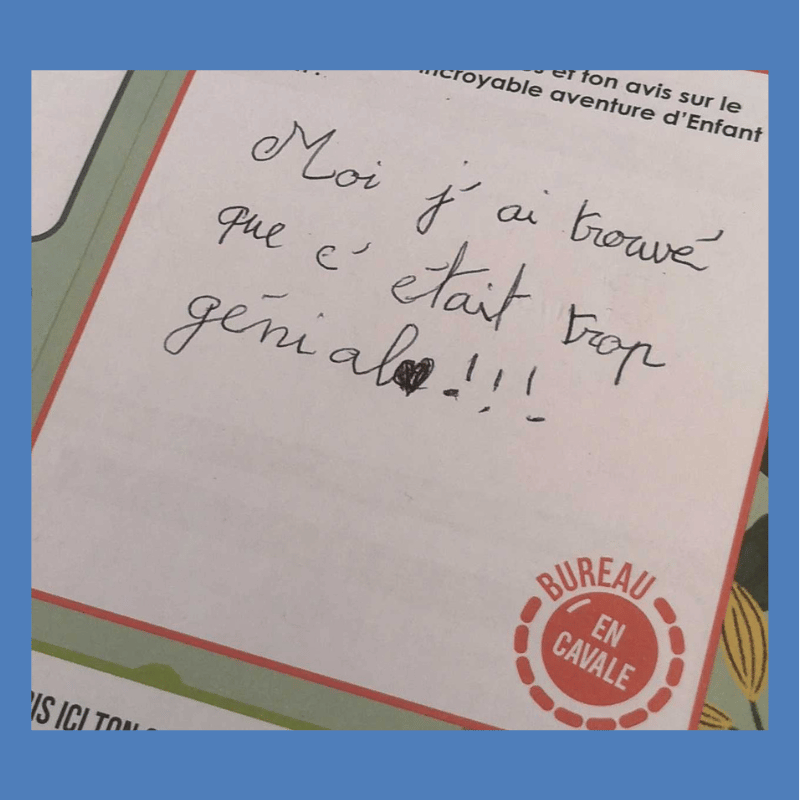 et ton avis sur le
incroyable aventure d'Enfant
Moi j'ai trouvé
que c'était trop
génial !!!
BUREAU
EN
CAVALE
ICI TON